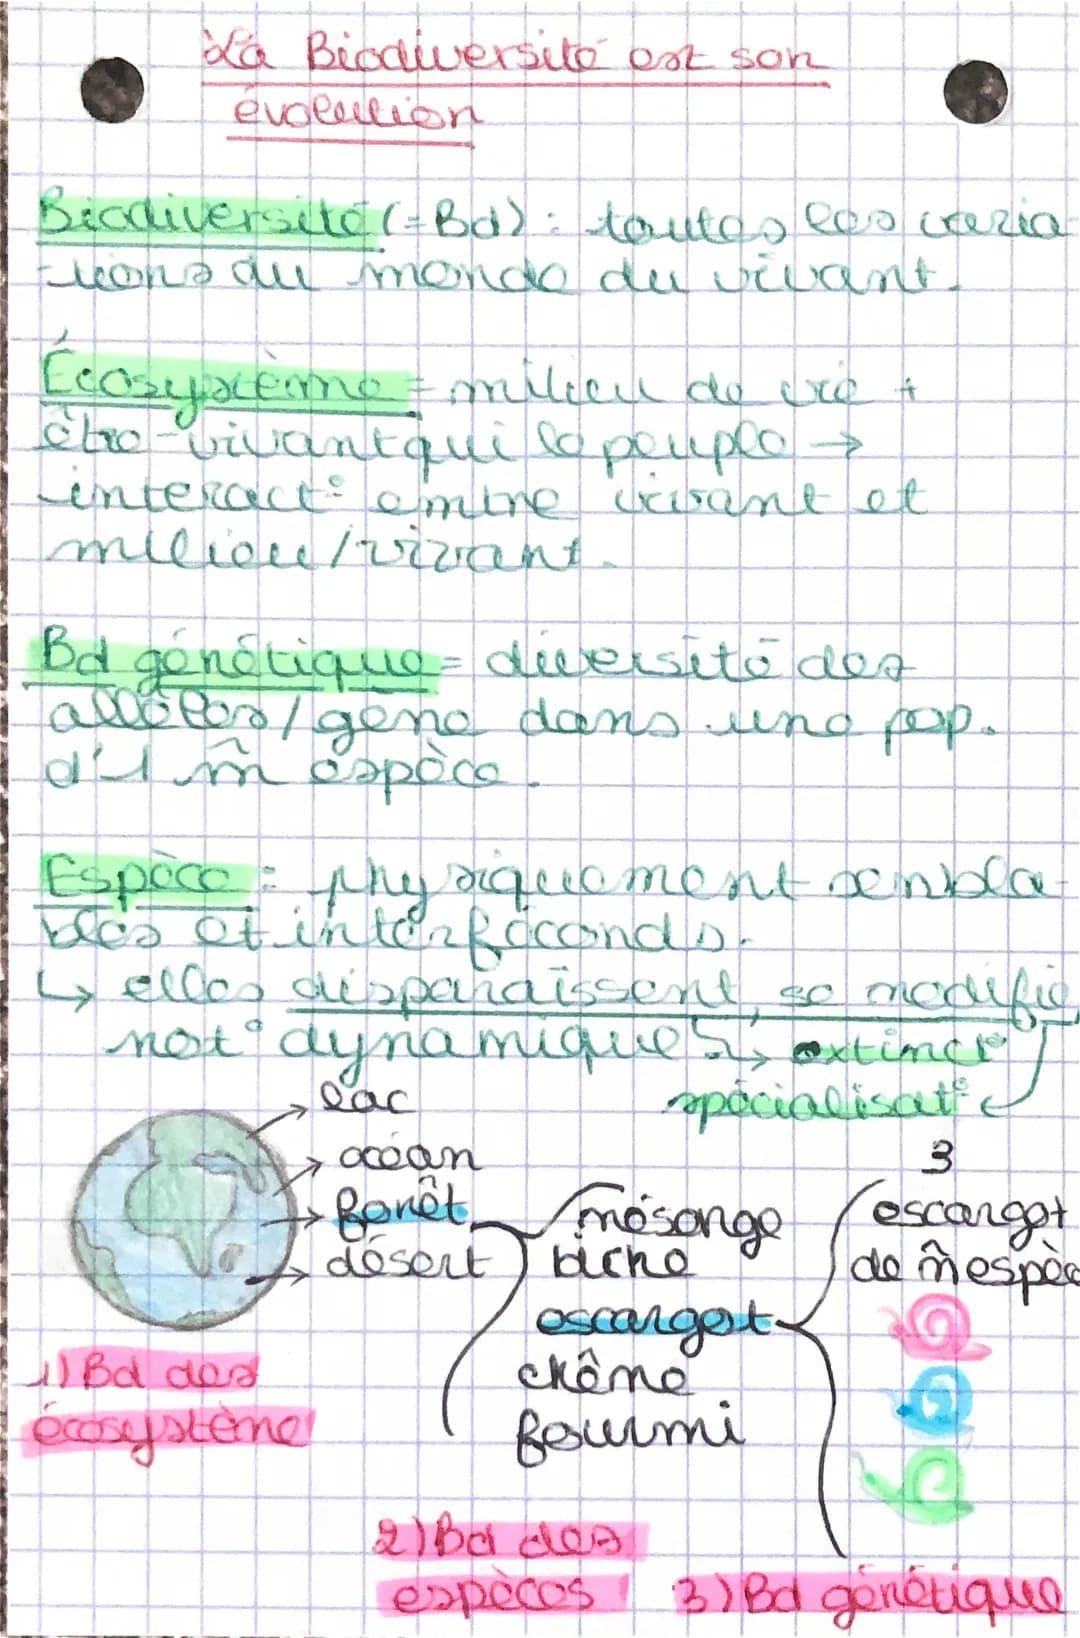 La Biodiversité est son
évolution
Biodiversité (=Bd) : toutes les varia
-tions du monde du vivant.
Écosystème = milieu de vie +
être-vivant qui le peuple →
interact° entre vivant et
milieu/vivant.
Bd génétique = diversité des
allèles/gène dans une pop.
d'1 m̂ espèce.
Espèce = physiquement sembla-
bles et interféconds.
↳ elles disparaissent, se modifie
not° dynamique ↳ extinct°
spécialisat°
lac
océan
forêt
désert
mésange
biche
escargot
chêne
fourmi
3
escargot
de m̂ espèc
1) Bd des
écosystème
2) Bd des
espèces
3) Bd génétique